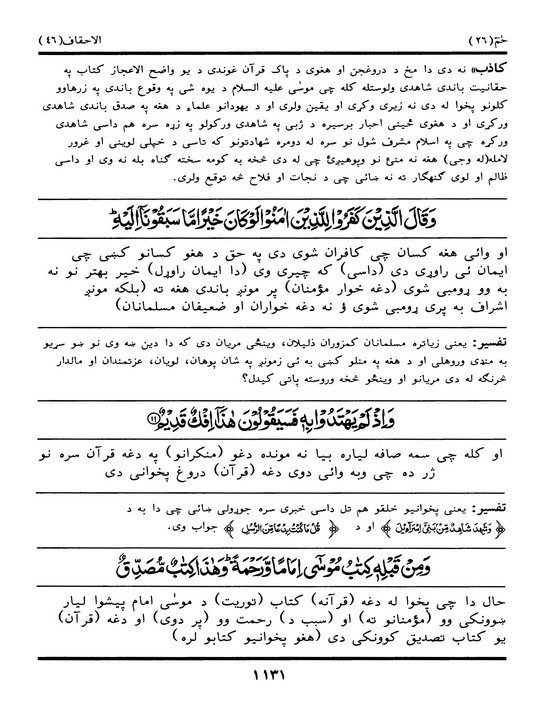 حٰم (٢٦) الاحقاف (٤٦)
کاذب» نه دی دا مخ د دروغجن او هغوی د پاک قرآن غوندی د یو واضح الاعجاز کتاب په
حقانیت باندی شاهدی ولوستله کله چی موسٰی علیه السلام د یوه شی په وقوع باندی په زرهاوو
کلونو پخوا له دی نه زیری وکړی او یقین ولری او د یهودانو علماء د هغه په صدق باندی شاهدی
ورکړی او د هغوی ځینی احبار برسیره د ژبی په شاهدی ورکولو په زړه سره هم داسی شاهدی
ورکړه چی په اسلام مشرف شول نو سره له دومره شهادتونو که تاسی د خپلی لوینی او غرور
لامله(له وجی) هغه نه منئ نو وپوهیږئ چی له دی څخه به کومه سخته گناه بله نه وی او داسی
ظالم او لوی گنهگار ته نه ښائی چی د نجات او فلاح څه توقع ولری.
وَقَالَ الَّذِيْنَ كَفَرُوْا لِلَّذِيْنَ اٰمَنُوْا لَوْ كَانَ خَيْرًا مَّا سَبَقُوْنَاۤ اِلَيْهِؕ
او وائی هغه کسان چی کافران شوی دی په حق د هغو کسانو کښی چی
ایمان ئی راوړی دی (داسی) که چیری وی (دا ایمان راوړل) خیر بهتر نو نه
به وو ړومبی شوی (دغه خوار مؤمنان) پر مونږ باندی هغه ته (بلکه مونږ
اشراف به پری ړومبی شوی ؤ نه دغه خواران او ضعیفان مسلمانان)
تفسیر: یعنی زیاتره مسلمانان کمزوران ذلیلان، وینځی مریان دی که دا دین ښه وی نو ښو سړیو
به منډی وروهلی او د هغه په منلو کښی به ئی زمونږ په شان پوهان، لویان، عزتمندان او مالدار
څرنگه له دی مریانو او وینځو څخه وروسته پاتی کیدل؟
وَاِذْ لَمْ يَهْتَدُوْا بِهٖ فَسَيَقُوْلُوْنَ هٰذَاۤ اِفْكٌ قَدِيْمٌ ۝١١
او کله چی سمه صافه لیاره بیا نه مونده دغو (منکرانو) په دغه قرآن سره نو
ژر ده چی وبه وائی دوی دغه (قرآن) دروغ پخوانی دی
تفسیر: یعنی پخوانیو خلقو هم تل داسی خبری سره جوړولی ښائی چی دا به د
﴿وَشَهِدَ شَاهِدٌ مِّنْ بَنِىْۤ اِسْرَآءِيْلَ﴾ او د ﴿قُلْ مَا كُنْتُ بِدْعًا مِّنَ الرُّسُلِ﴾ جواب وی.
وَمِنْ قَبْلِهٖ كِتٰبُ مُوْسٰۤى اِمَامًا وَّرَحْمَةًؕ وَهٰذَا كِتٰبٌ مُّصَدِّقٌ
حال دا چی پخوا له دغه (قرآنه) کتاب (توریت) د موسٰی امام پیشوا لیار
ښوونکی وو (مؤمنانو ته) او (سبب د) رحمت وو (پر دوی) او دغه (قرآن)
یو کتاب تصدیق کوونکی دی (هغو پخوانیو کتابو لره)
١١٣١